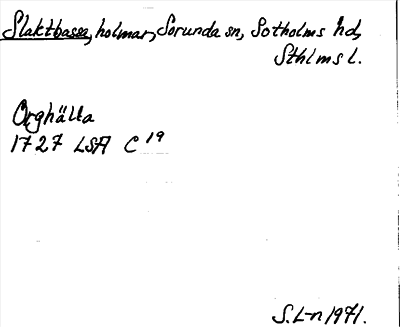 Slaktbassa, holmar, Sorunda sn, Sotholms hd,
Sthlms l.
Orghälla
1727 LSA C 19
S.L-n 1971.